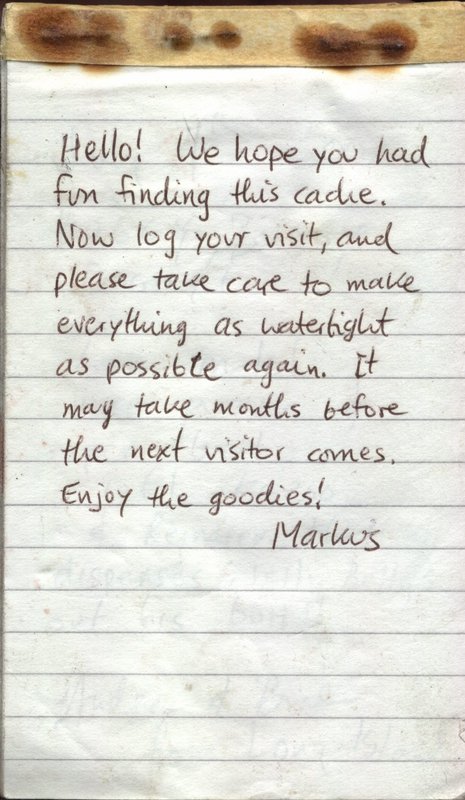 Hello! We hope you had
fun finding this cache.
Now log your visit, and
please take care to make
everything as watertight
as possible again. It
may take months before
the next visitor comes.
Enjoy the goodies!
Markus